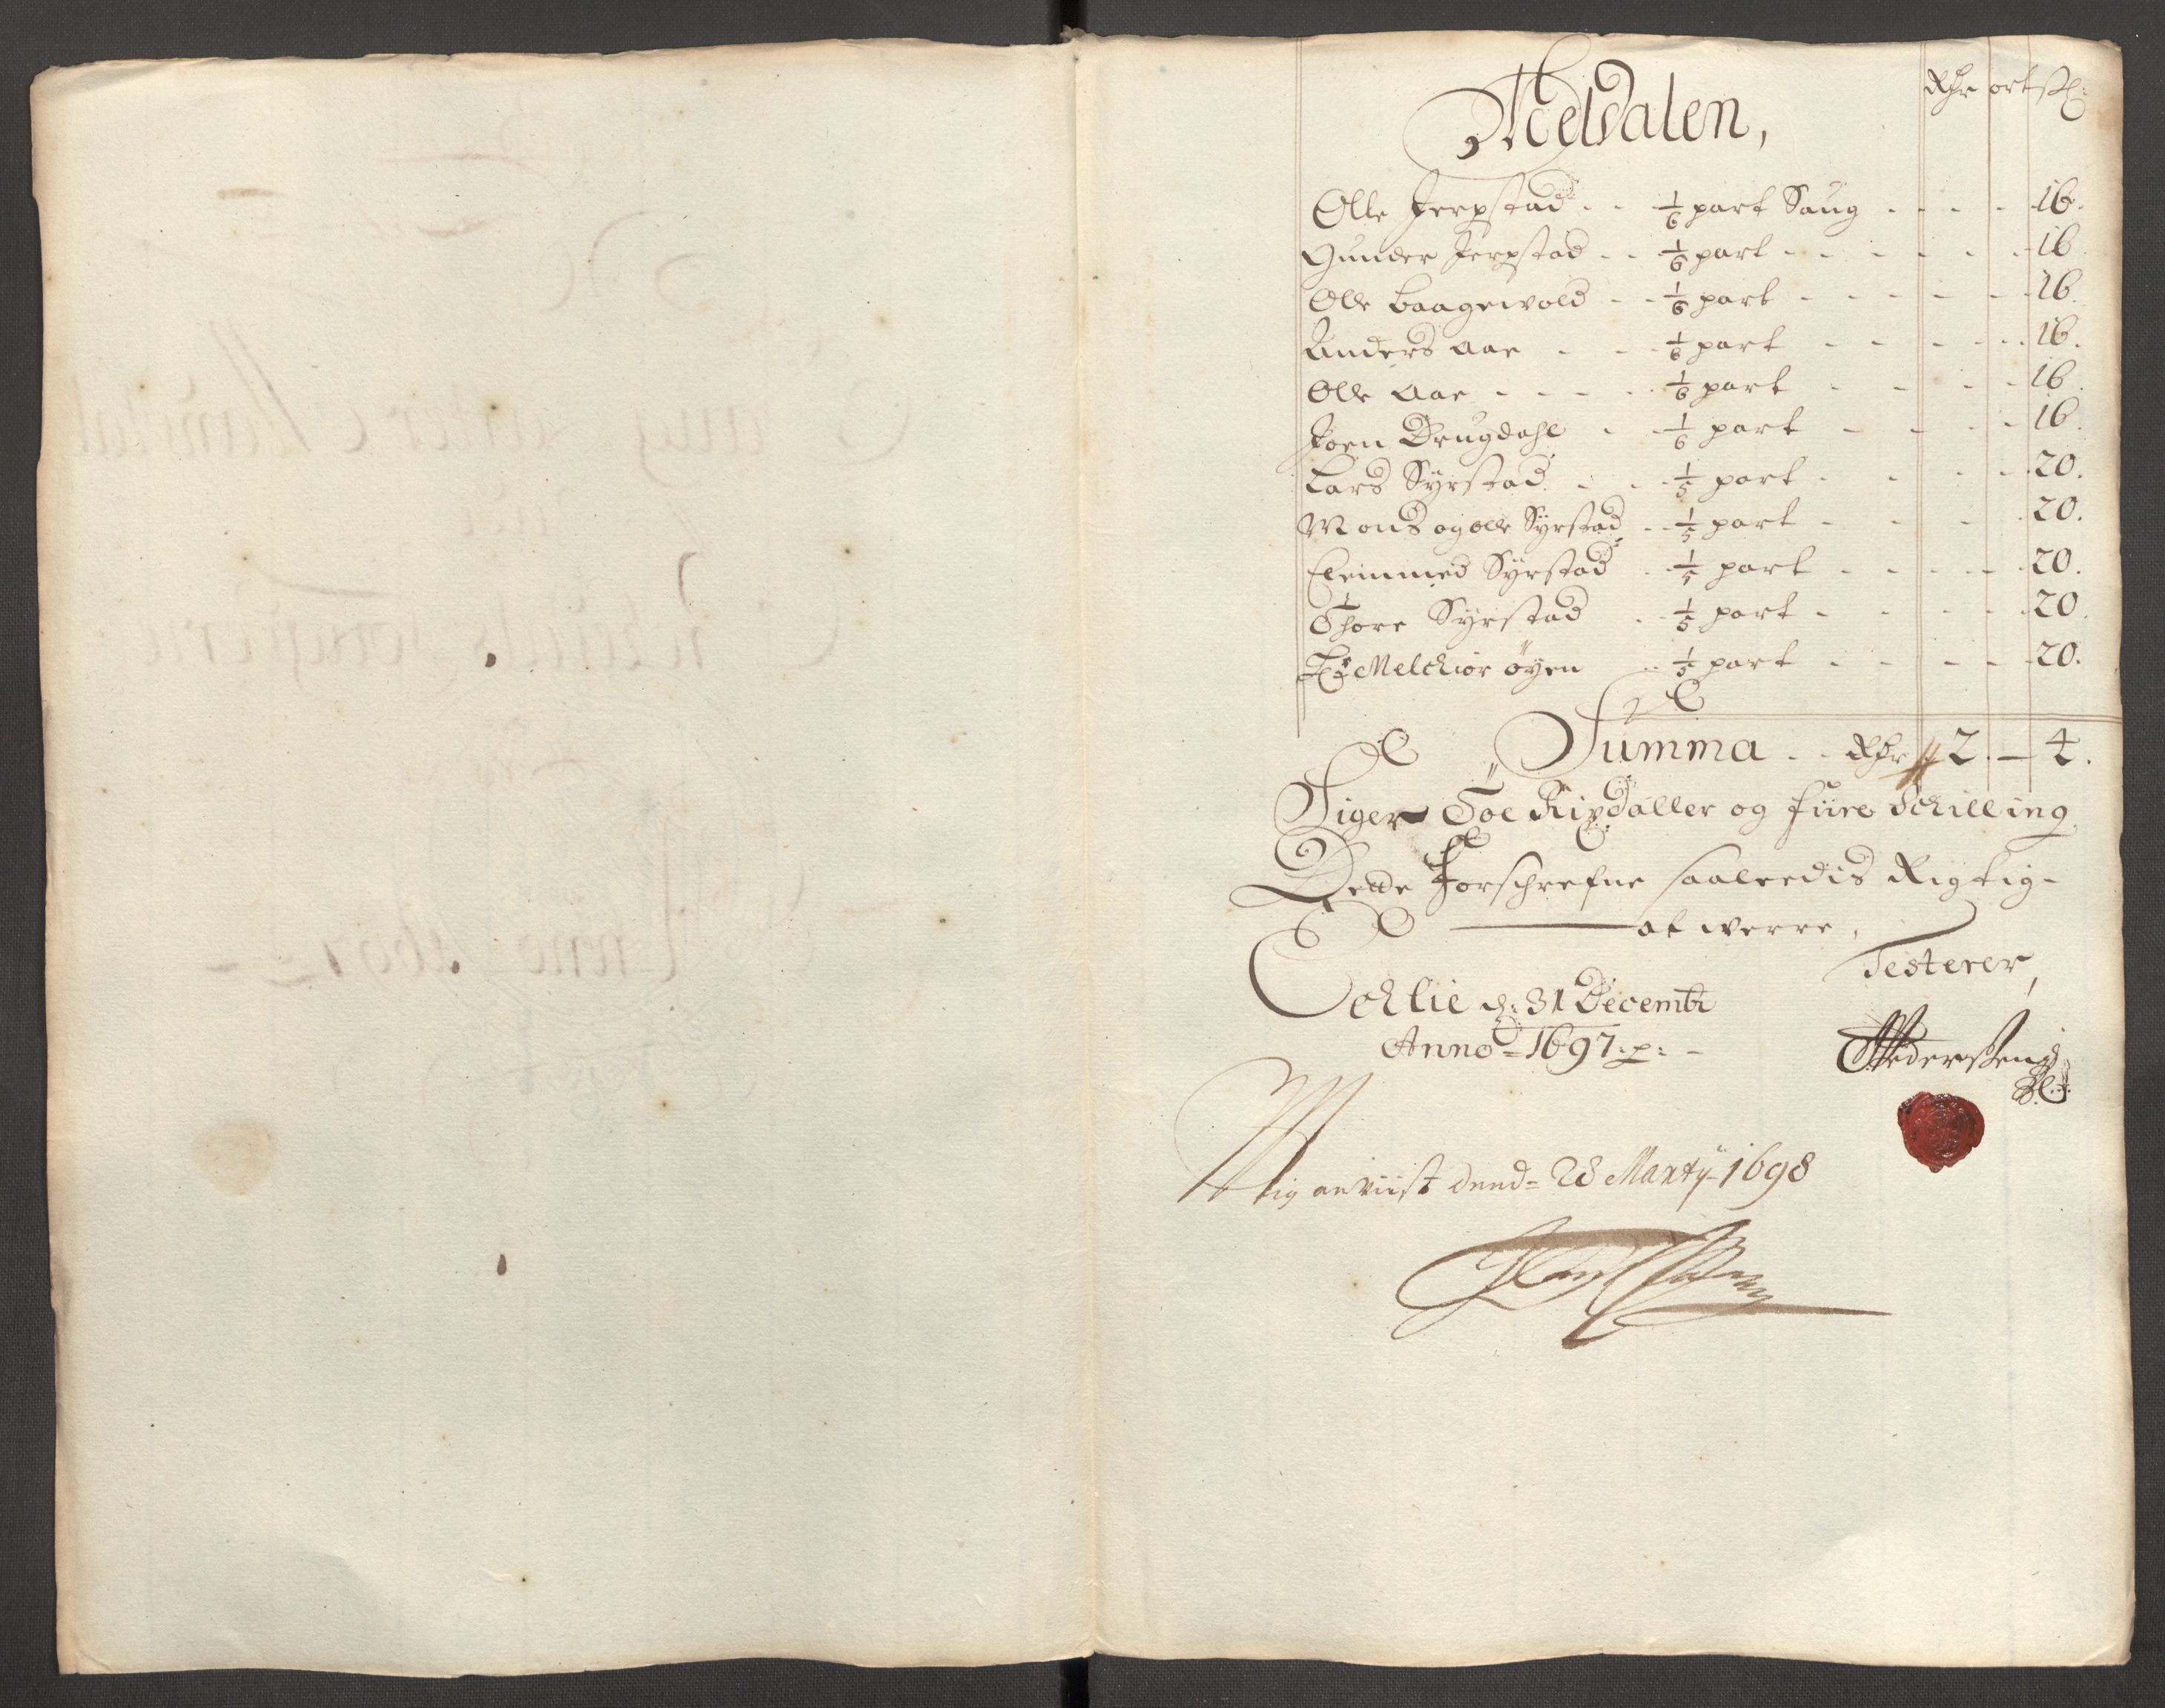 Meldalen,
Rdr ort ß:
Olle Jerpstad - - 1/6 part Saug - - - - 16.
Gunder Jerpstad - - 1/6 part - - - - - - 16
Olle baagewold - - 1/6 part - - - - - 16.
Anders Aae - - 1/6 part - - - - - 16.
Olle Aae - - - - 1/6 part - - - - 16.
Joen Drugdahl - - 1/6 part - - - - 16.
Lars Syrstad - - 1/5 part - - - - 20.
Mons og olle Syrstad - - 1/5 part - - - 20.
Clemmed Syrstad - 1/5 part - - - - - 20.
Thore Syrstad - 1/5 part - - - - 20.
Melchior öyen - - 1/5 part - - - - 20.
Summa - - Rdr 2. - 4.
Siger Toe Rixdaller og fiire Schilling
Dette Forschrefne saaleedis Rigtig-
at werre,
Testerer,
Echlie d: 31 Decembr
Anno = 1697. p: -
Pedersen
Mig anviist dend = 28 Marty 1698